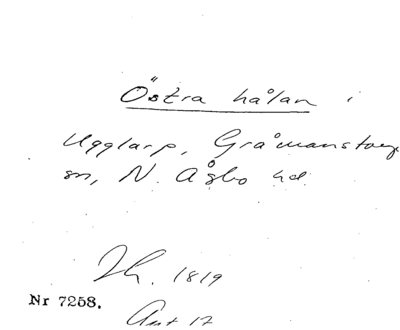 Östra hålan i
Ugglarp, Gråmanstorps
sn, N. Åsbo hd.
Th. 1819
Nr 7258.
Ant 17